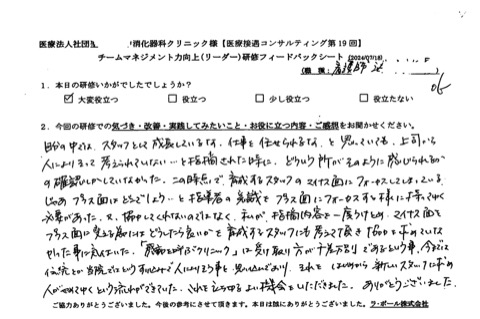 医療法人社団 消化器科クリニック様【医療接遇コンサルティング第19回】
チームマネジメント力向上(リーダー)研修フィードバックシート(2024/07/18)
(職種:看護師
1.本日の研修いかがでしたでしょうか?
☑大変役立つ □役立つ □少し役立つ □役立たない
2.今回の研修での気づき・改善・実践してみたいこと・お役に立つ内容・ご感想をお聞かせください。
自分の中では、スタッフとして成長しているな、仕事を任せられるな、と思っていても、上司から
人によって考えられていない…と指摘された時に、どういう所がそのように感じられるか
の確認しかしていなかった。この時点で、育成するスタッフのマイナス面にフォーカスしてしまっている。
じゃあプラス面はどこでしょう…と指導者の意識をプラス面にフォーカスする様に持ってゆく
必要があった。又、協力してくれないのではなく、私が、指摘内容を一度うけとめ、マイナス面を
プラス面に変える為にはどうしたら良いかを育成するスタッフにも考えて頂き協力を求めていな
かった事に気付いた。 は受け取り方が十人十色であるという事、今まで
伝統とか当院ではという 人に 事を思い込んでおり、 新しいスタッフに求め
人がやめてゆくという流れができていた。それを 良い機会をいただきました。ありがとうございました。
ご協力ありがとうございました。今後の参考にさせて頂きます。本日は誠にありがとうございました。 ラ・ポール株式会社